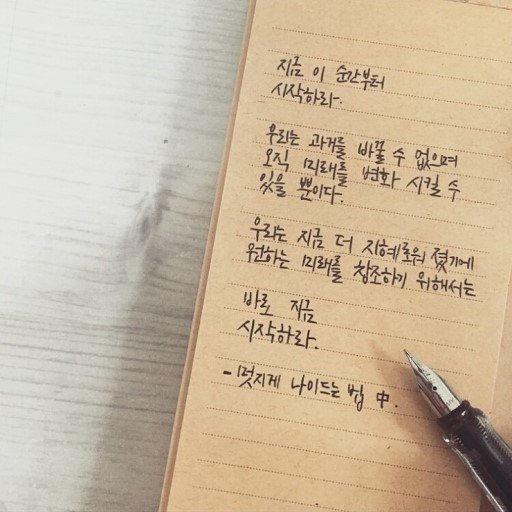 지금 이 순간부터
시작하라.
우리는 과거를 바꿀 수 없으며
오직 미래를 변화 시킬 수
있을 뿐이다.
우리는 지금 더 지혜로워 졌기에
원하는 미래를 창조하기 위해서는
바로 지금
시작하라.
- 멋지게 나이드는 법 中.